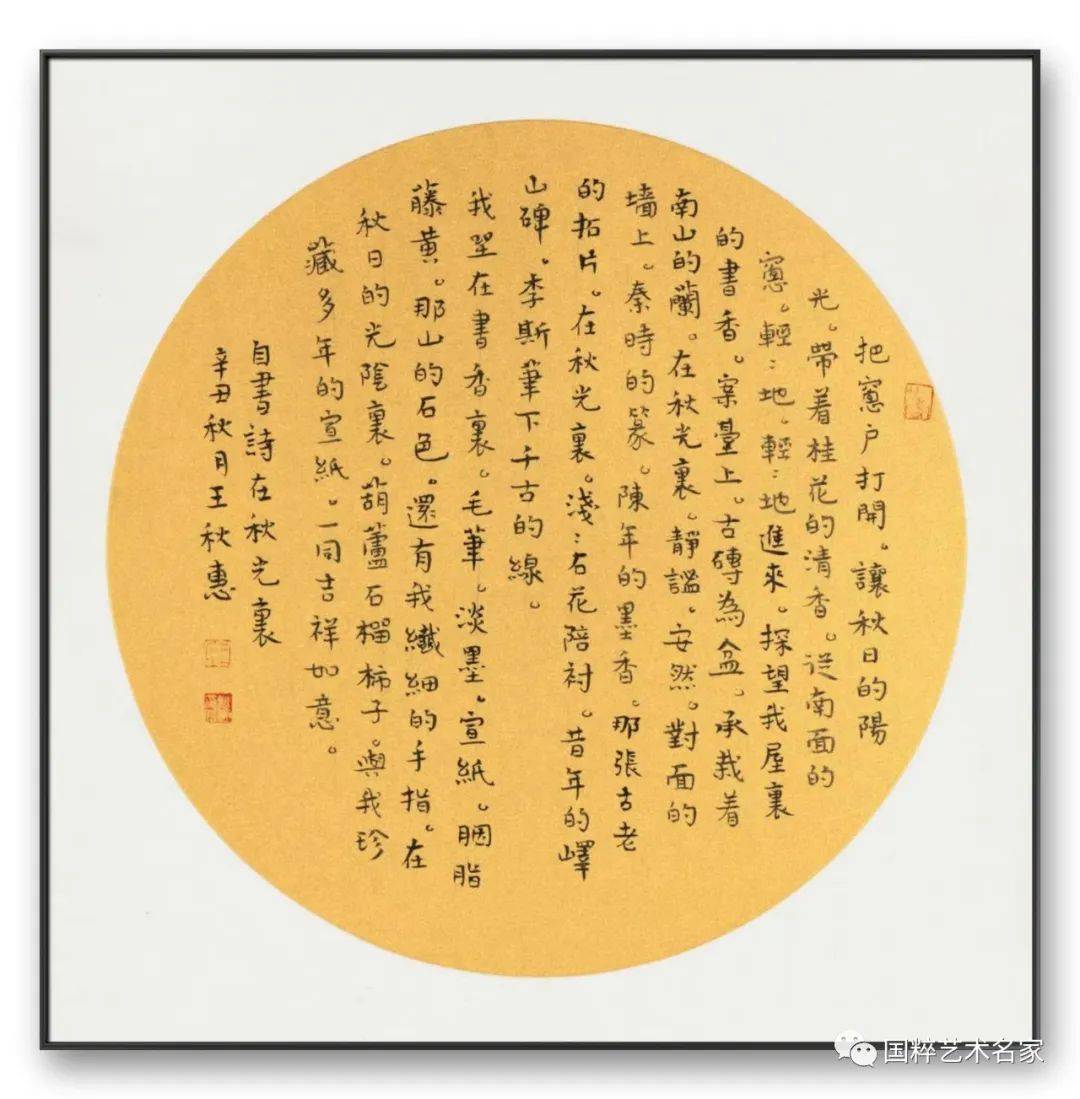 把窻户打開。讓秋日的陽
光。帶着桂花的清香。從南面的
窻。輕〻地。輕〻地進來。探望我屋裏
的書香。案臺上。古磚為盆。承栽着
南山的蘭。在秋光裏。靜謐。安然。對面的
墙上。秦時的篆。陳年的墨香。那張古老
的拓片。在秋光裏。淺〻石花陪衬。昔年的嶧
山碑。李斯筆下千古的線。
我坐在書香裏。毛筆。淡墨。宣紙。胭脂
藤黄。那山的石色。還有我纖細的手指。在
秋日的光陰裏。葫蘆石榴柿子。與我珍
藏多年的宣紙。一同吉祥如意。
自書詩在秋光裏
辛丑秋月王秋惠
国粹艺术名家